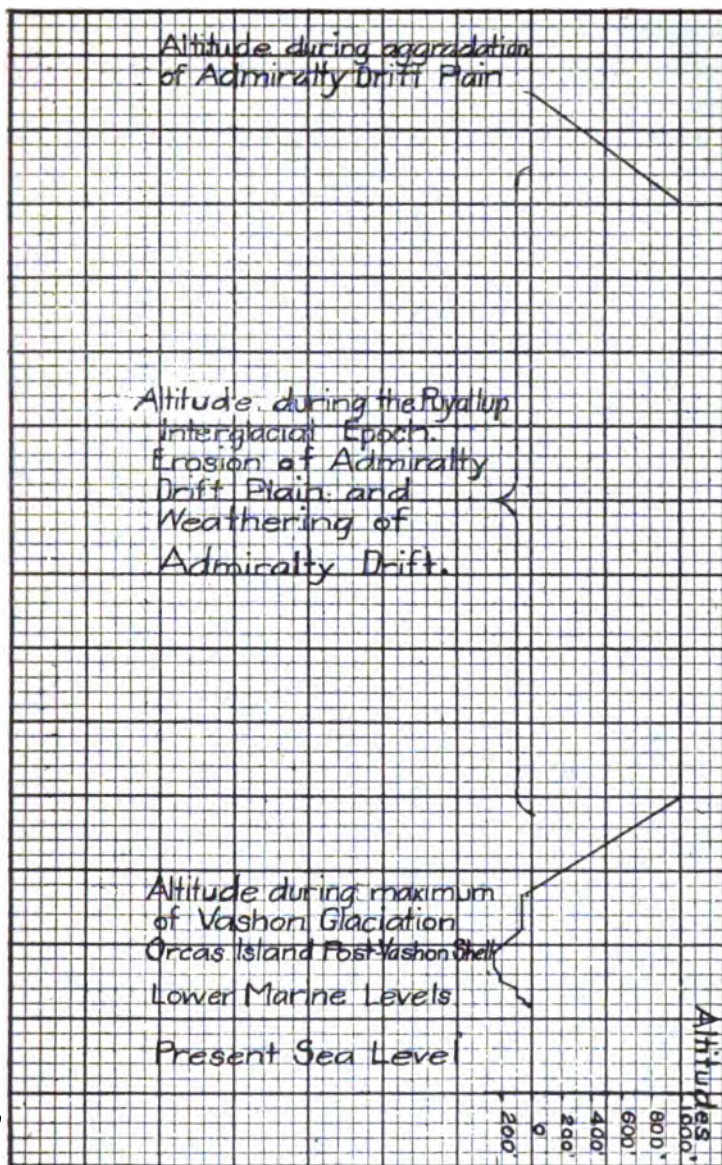 Altitude during aggradation
of Admiralty Drift Plain
Altitude during the Puyallup
Interglacial Epoch.
Erosion of Admiralty
Drift Plain and
Weathering of
Admiralty Drift.
Altitude during maximum
of Vashon Glaciation
Orcas Island Post-Vashon Shell
Lower Marine Levels
Present Sea Level
Altitudes
200'
0
200'
400'
600'
800'
1000'